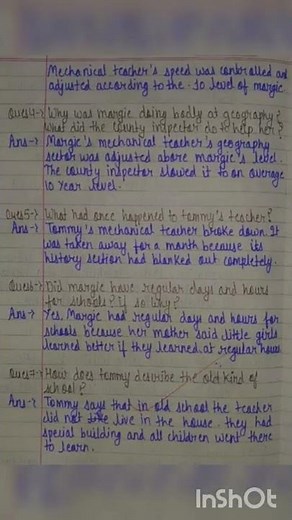 Mechanical teacher's speed was controlled and
adjusted according to the 10 level of margie
Ques4-> Why was margie doing badly at geography?
What did the county inspector do to help her?
Ans-> Margie's mechanical teacher's geography
sector was adjusted above margie's level.
The county inpector slowed it to an average
10 year level.
Ques5-> What had once happened to tommy's teacher?
Ans-> Tommy's mechanical teacher broke down. It
was taken away for a month because its
history section had blanked out completely.
Ques6-> Did margie have regular days and hours
for schools? if so why?
Ans-> Yes, Margie had regular days and hours for
schools because her mother said little girls
learned better if they learned at regular hours
Ques7-> How does tommy describe the old kind of
school?
Ans-> Tommy says that in old school the teacher
did not live in the house. they had
special building and all children went there
to learn.
InShOt